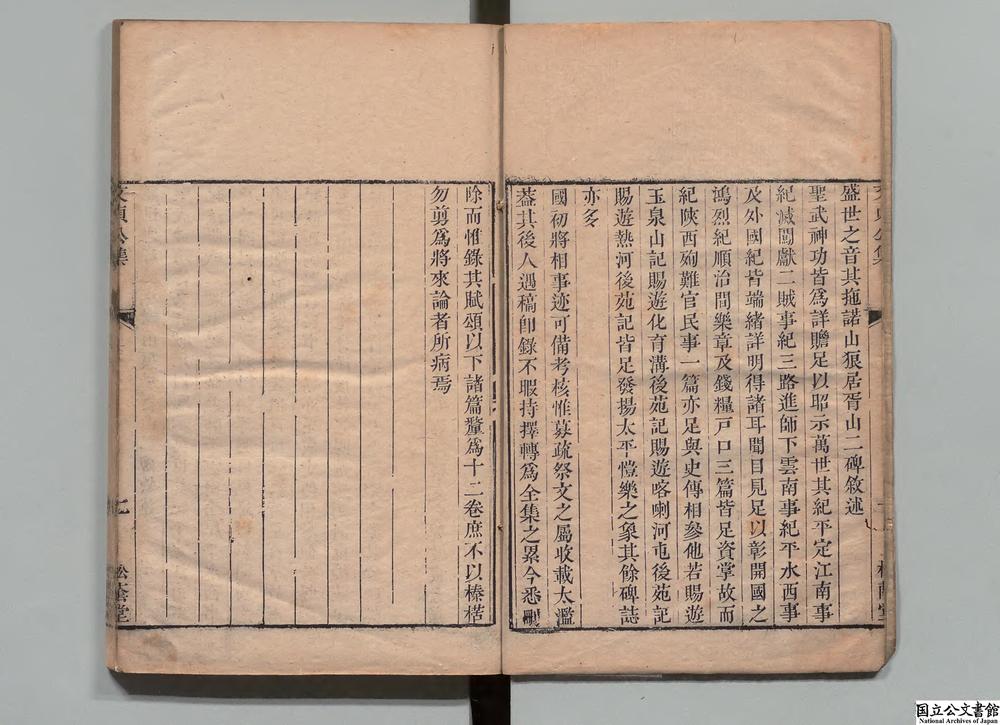 盛世之音其拖諾山狼居胥山二碑敘述
聖武神功皆爲詳贍足以昭示萬世其紀平定江南事
紀滅闖獻二賊事紀三路進師下雲南事紀平水西事
及外國紀皆端緒詳明得諸耳聞目見足以彰開國之
鴻烈紀順治間樂章及錢糧戸口三篇皆足資掌故而
紀陜西殉難官民事一篇亦足與史傳相參他若賜遊
玉泉山記賜遊化育溝後苑記賜遊喀喇河屯後苑記
賜遊熱河後苑記皆足發揚太平愷樂之象其餘碑誌
亦多
國初將相事迹可備考核惟募疏祭文之屬收載太濫
葢其後人遇稿即錄不暇持擇轉爲全集之累今悉刪
除而惟錄其賦頌以下諸篇釐爲十二卷庶不以榛楛
勿剪爲將來論者所病焉
文貞公集
七
松蔭堂
国立公文書館
National Archives of Japan